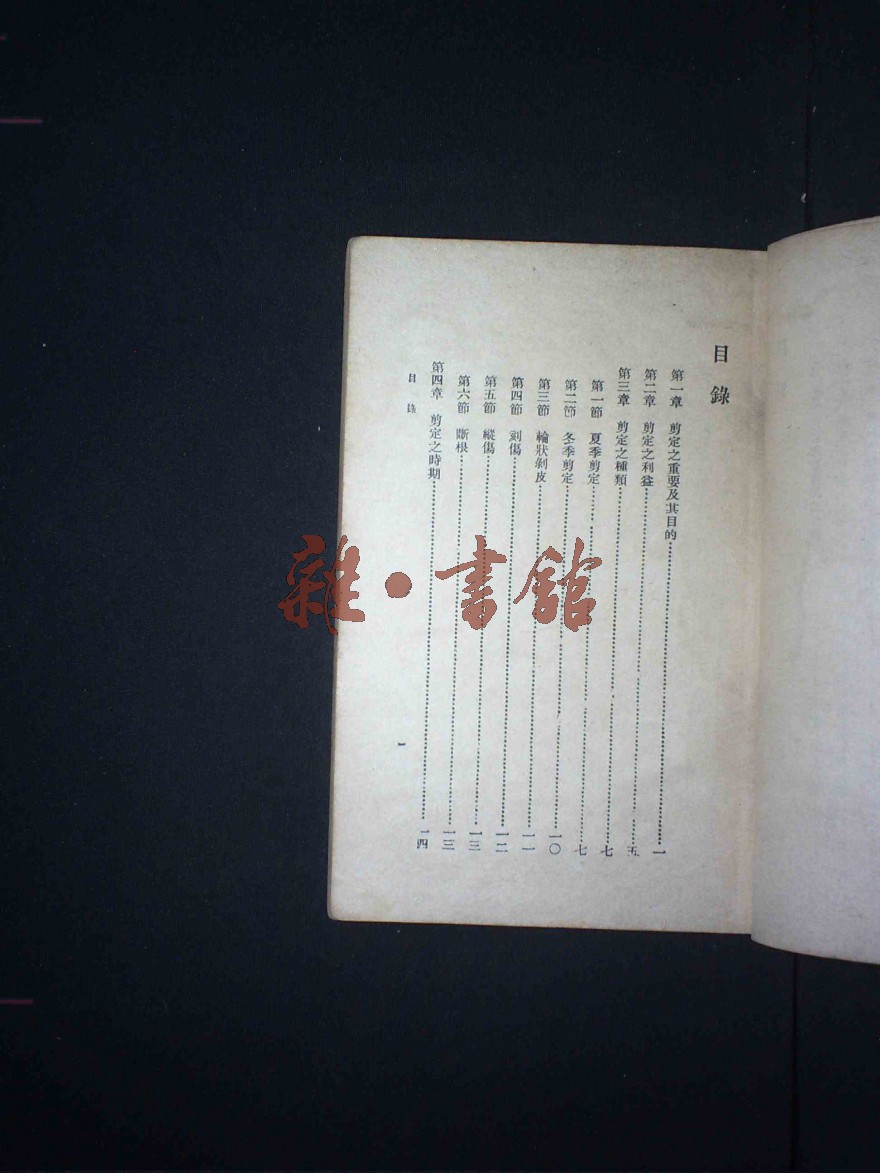 目錄
第一章　剪定之重要及其目的……一
第二章　剪定之利益……五
第三章　剪定之種類……七
第一節　夏季剪定……七
第二節　冬季剪定……一〇
第三節　輪狀剝皮……一一
第四節　刻傷……一二
第五節　縱傷……一三
第六節　斷根……一三
第四章　剪定之時期……一四
目錄
一
雜·書館